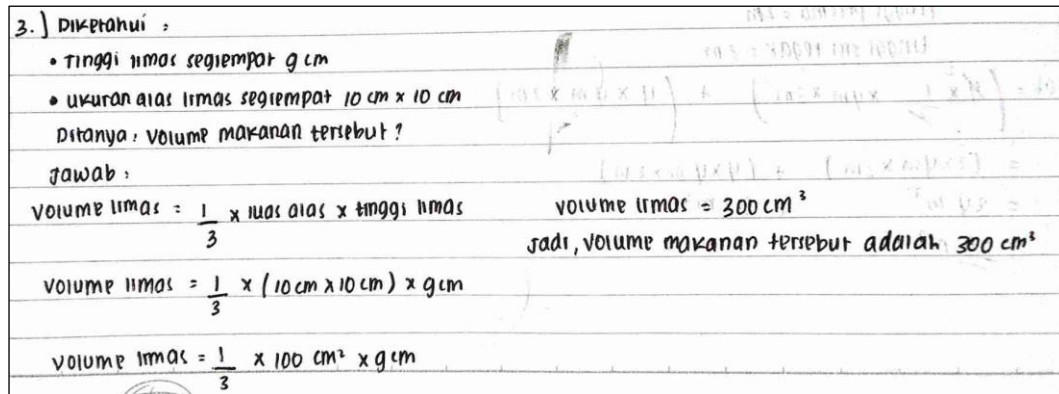 3.) Diketahui :
• Tinggi limas segiempat 9 cm
• ukuran alas limas segiempat 10 cm x 10 cm
Ditanya : Volume makanan tersebut ?
Jawab :
Volume limas = 1/3 x luas alas x tinggi limas
Volume limas = 1/3 x (10 cm x 10 cm) x 9 cm
Volume limas = 1/3 x 100 cm² x 9 cm
Volume limas = 300 cm³
Jadi, Volume makanan tersebut adalah 300 cm³